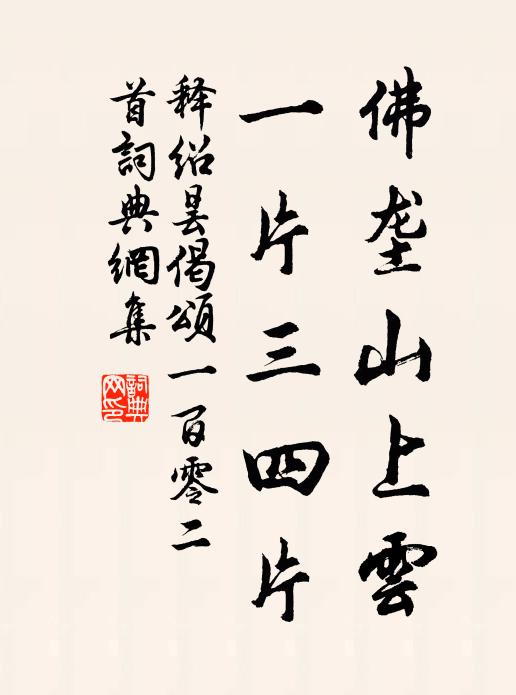 佛垄山上雲
一片三四片
释绍昙偈頌一百零二
首詞典網集
詞典
网印